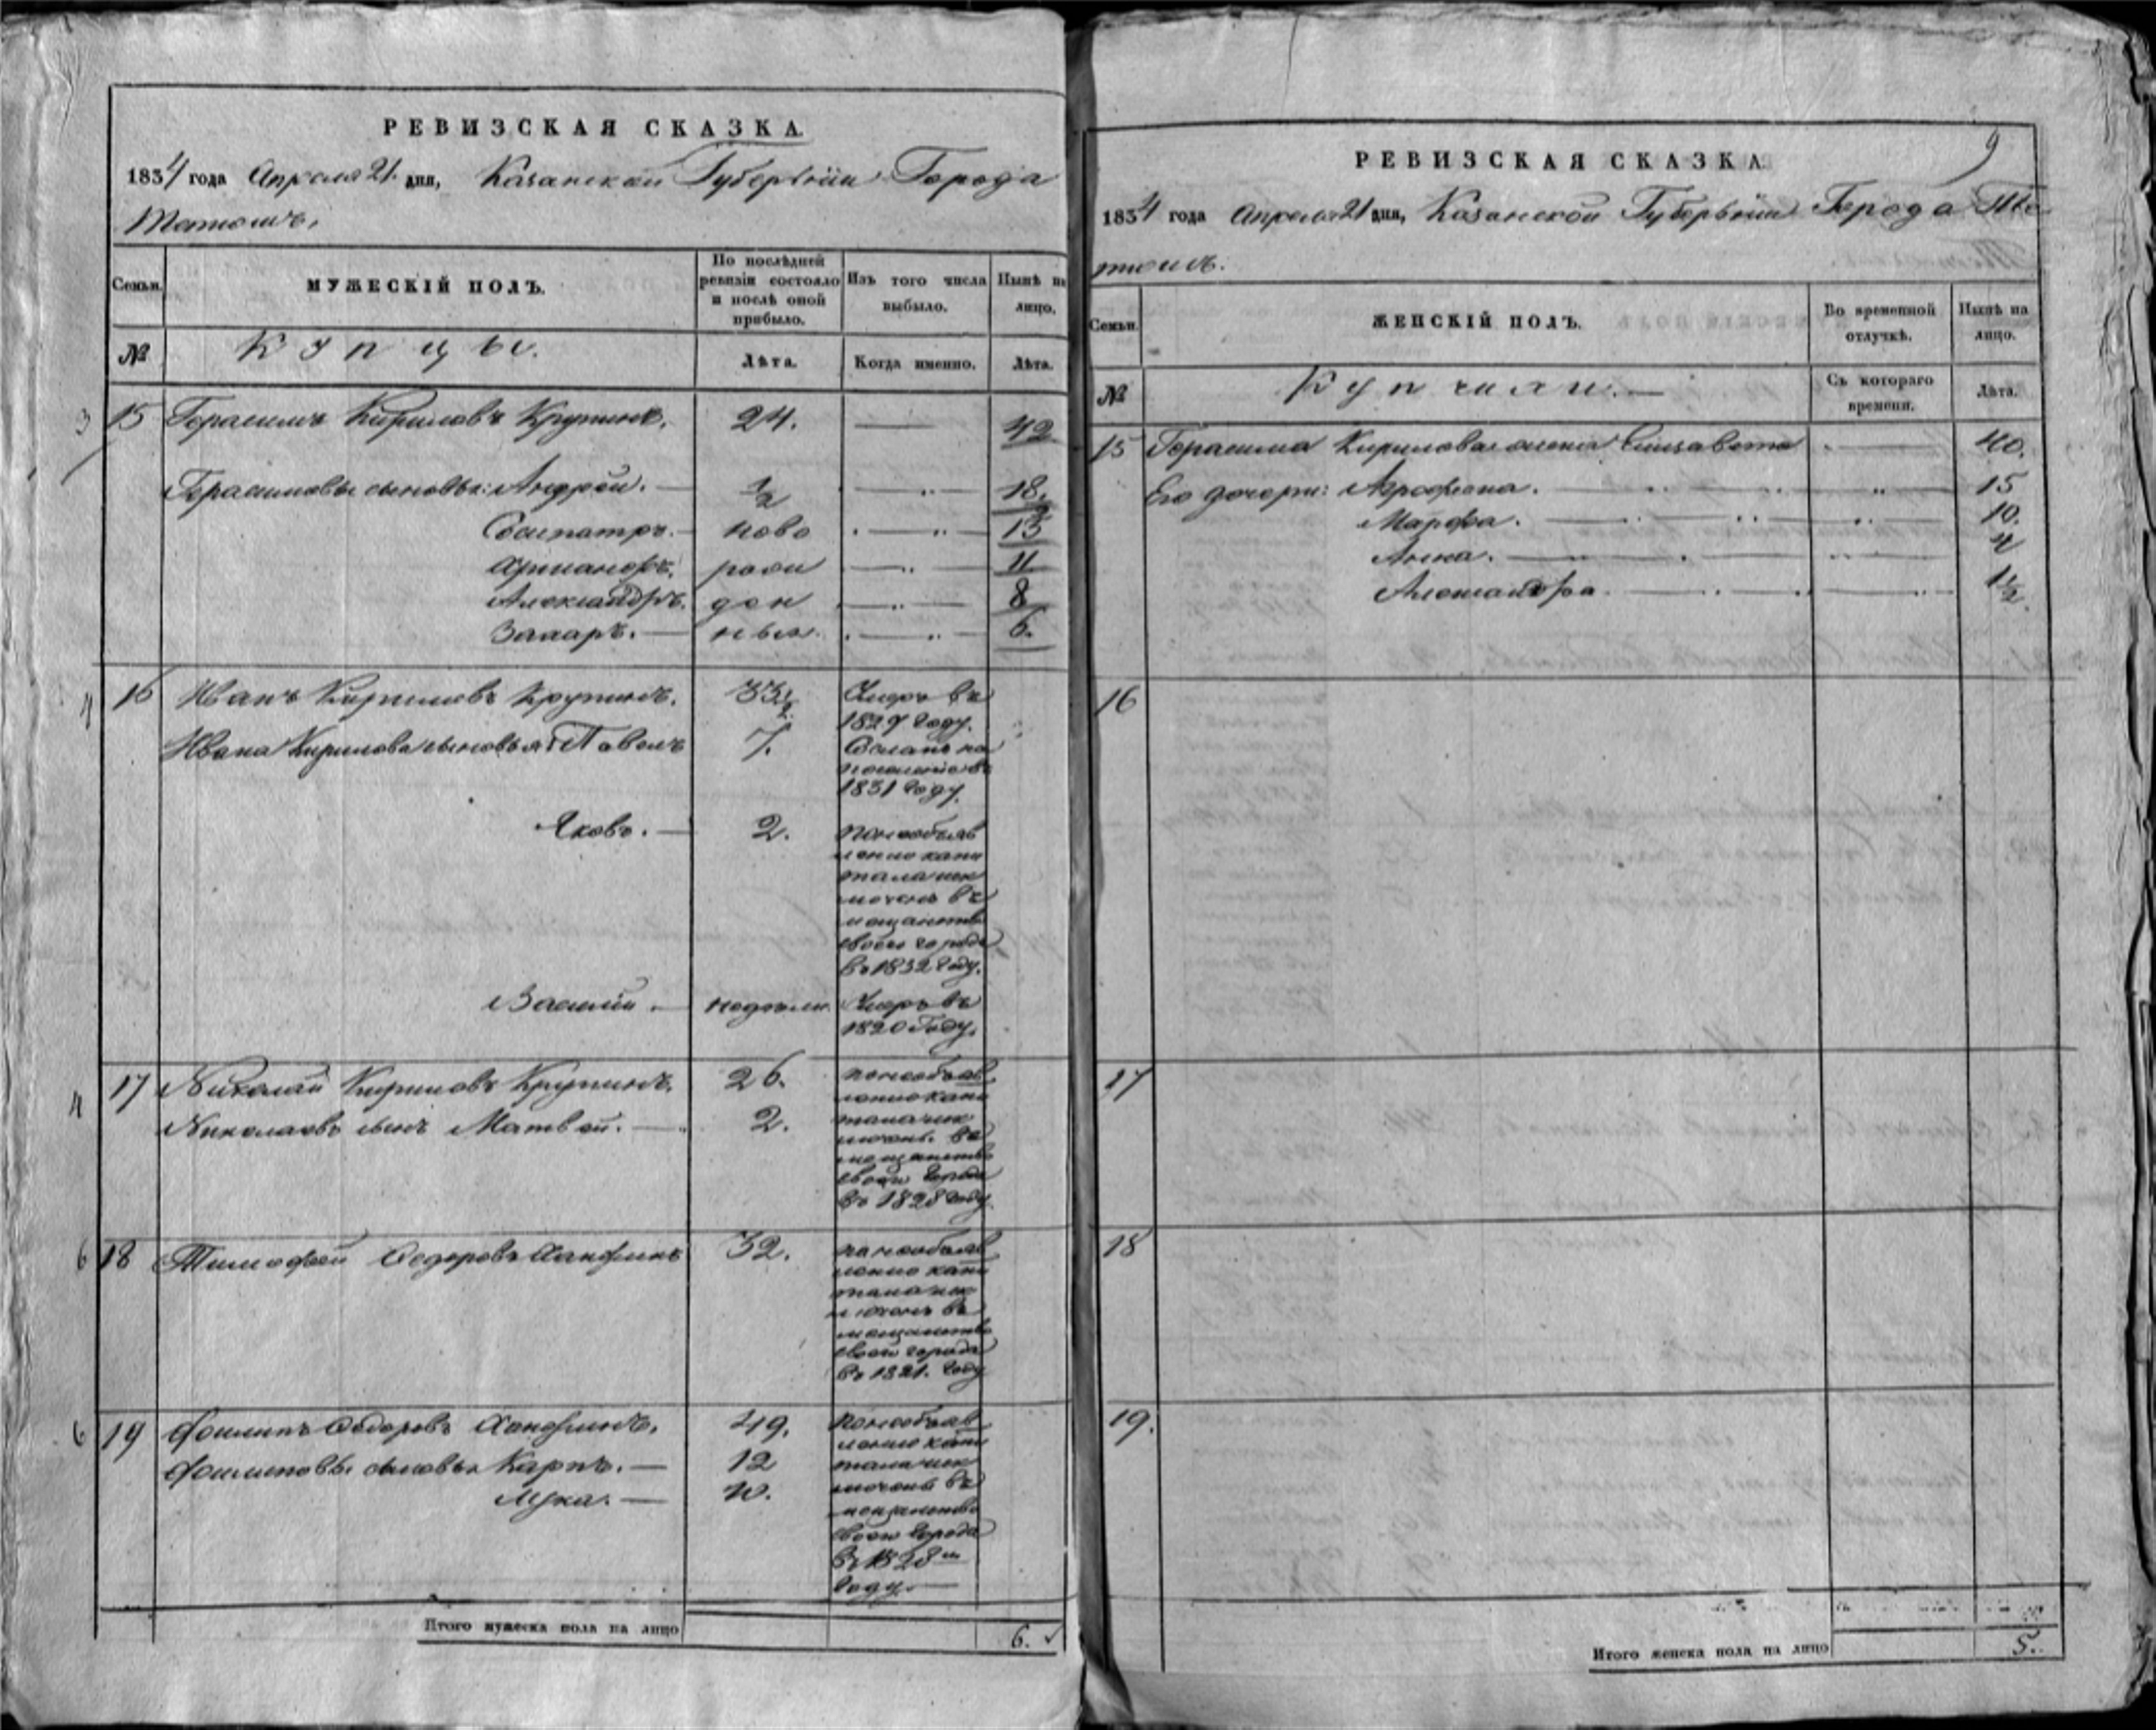 РЕВИЗСКАЯ СКАЗКА.
1834 года Апреля 21 дня, Казанской Губернии Города
Тетюшъ,
Семьи.
МУЖЕСКІЙ ПОЛЪ.
По послѣдней ревизіи состояло и послѣ оной прибыло.
Изъ того числа выбыло.
Нынѣ на лицо.
№
Купцы.
Лѣта.
Когда именно.
Лѣта.
3
15 Герасимъ Кириловъ Крупинъ. 24. — 42
Герасимовы сыновья: Андрей. — 1/2 — 18.
Сосипатръ. — ново — 13
рожи — 11
Александръ. ден — 8
Захаръ. — ныя. — 6.
4
16 Иванъ Кириловъ Крупинъ. 33 1/2 Умеръ въ
1827 году.
Ивана Кирилова сыновья: Павелъ 7. Сосланъ на
поселеніе въ
1831 году.
Яковъ. — 2. по необъяв
ленію капи
тала
въ
мещанство
своего города
въ 1832 году.
Василій. — недѣли. Умеръ въ
1820 Году.
4
17 Николай Кириловъ Крупинъ. 26. по необъяв
ленію капи
Николаевъ сынъ Матвей. — 2. тала
въ
мещанство
города
въ 1828 году
6
18 Тимофей Федоровъ 32. по необъяв
ленію капи
тала
въ
мещанство
города
въ 1821. году
6
19 Филипъ Федоровъ 49. по необъяв
ленію капи
Филиповы сыновья Карпъ. — 12 тала
Лука. — 10. въ
мещанство
города
въ 1828 м
году. —
Итого мужеска пола на лицо 6.
9
РЕВИЗСКАЯ СКАЗКА
1834 года Апреля 21 дня, Казанской Губернии Города Те
тюшъ.
Семьи.
ЖЕНСКІЙ ПОЛЪ.
Во временной отлучкѣ.
Нынѣ на лицо.
№
Купчихи. —
Съ котораго времени.
Лѣта.
15 Герасима Кирилова жена Елисавета — 40.
Его дочери: — 15
Марфа. — 10.
Анна. — 4
Александра. — 1 1/2
16
17
18
19.
Итого женска пола на лицо 5.